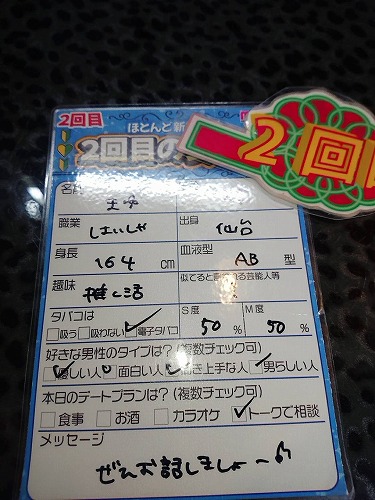 2回目
ほとんど新
2回目の
2回
名
職業 はいしゃ 出身 仙台
身長 164 cm 血液型 AB 型
趣味 推し活 似てると言われる芸能人等
タバコは S度 M度
吸う 吸わない 電子タバコ 50 % 50 %
好きな男性のタイプは?(複数チェック可)
優しい人 面白い人 聞き上手な人 男らしい人
本日のデートプランは?(複数チェック可)
食事 お酒 カラオケ トークで相談
メッセージ
ぜんぶ話しましょ〜